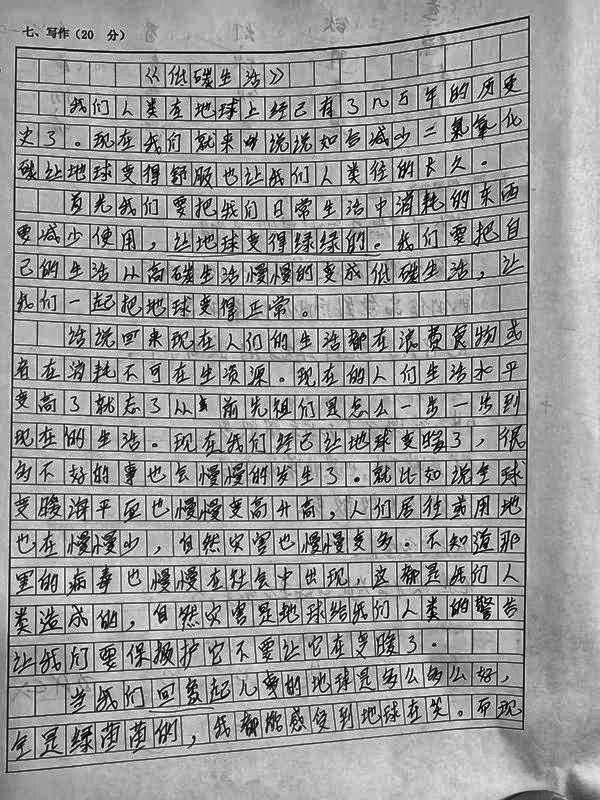 七、写作(20 分)
《低碳生活》
我们人类在地球上经已有了几万年的历史
史了。现在我们就来说说如台减少二氧氧化
碳让地球变得舒服也让我们人类住的长久。
首先我们要把我们日常生活中消耗的东西
要减少使用，让地球变得绿绿的。我们要把自
己的生活从高碳生活慢慢的变成低碳生活，让
我们一起把地球变得正常。
话说回来现在人们的生活都在浪费食物或
者在消耗不可在生资源。现在的人们生活水平
变高了就忘了从前先祖们是怎么一步一步到
现在的生活。现在我们经已让地球变暖了，很
多不好的事也会慢慢的发生了。就比如说全球
变暖海平面也慢慢变高升高，人们居住或用地
也在慢慢少，自然灾害也慢慢变多。不知道那
里的病毒也慢慢在社会中出现，这都是我们人
类造成的，自然灾害是地球给我们人类的警告
让我们要保护它不要让它在变暖了。
当我们回忆起儿事的地球是多么多么好，
全是绿茵茵的，我都能感受到地球在笑。而现